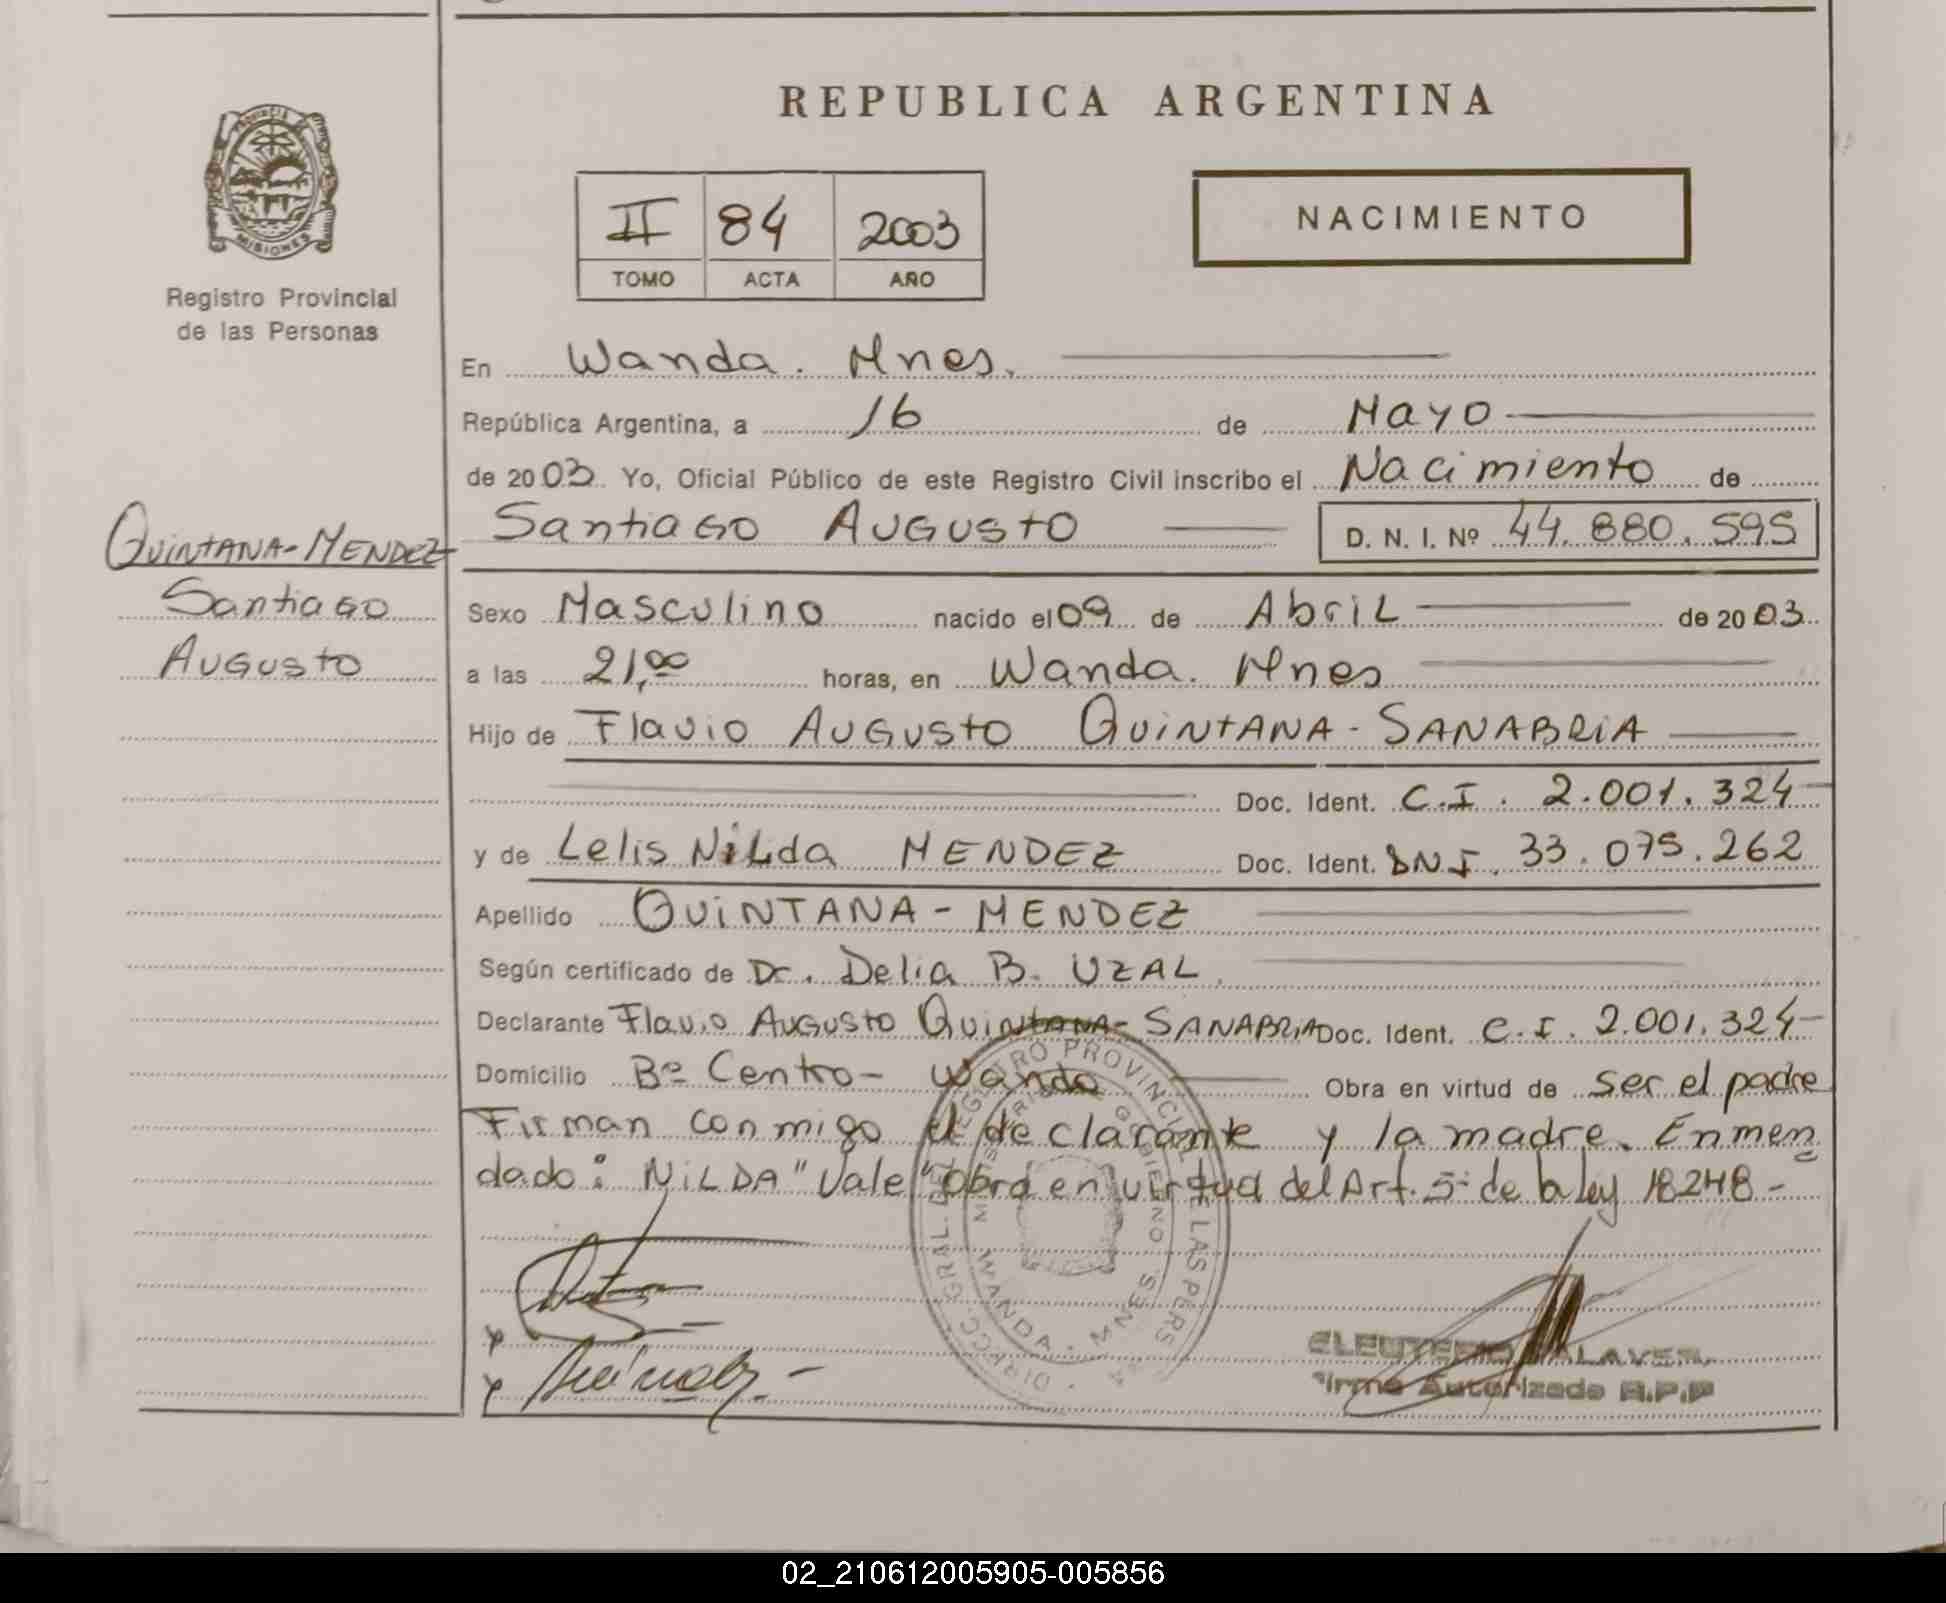 REPUBLICA ARGENTINA
PROVINCIA DE
MISIONES
Registro Provincial
de las Personas
II 84 2003
TOMO ACTA AÑO
NACIMIENTO
En Wanda. Mnes.
República Argentina, a 16 de Mayo
de 2003 Yo, Oficial Público de este Registro Civil inscribo el Nacimiento de
Santiago Augusto D. N. I. Nº 44.880.595
QUINTANA-MENDEZ
Santiago
Augusto
Sexo Masculino nacido el 09 de Abril de 2003
a las 21,00 horas, en Wanda. Mnes
Hijo de Flavio Augusto QUINTANA-SANABRIA
Doc. Ident. C.I. 2.001.324
y de Lelis Nilda MENDEZ Doc. Ident. DNI. 33.075.262
Apellido QUINTANA-MENDEZ
Según certificado de Dr. Delia B. UZAL
Declarante Flavio Augusto QUINTANA-SANABRIA Doc. Ident. C.I. 2.001.324
Domicilio Bº Centro- Wanda Obra en virtud de ser el padre
Firman conmigo el declarante y la madre. Enmen
dado: NILDA "Vale" obra en virtud del Art. 5º de la ley 18248-
DIRECC. GRAL. DEL REGISTRO PROVINCIAL DE LAS PERS
MINISTERIO DE GOBIERNO
WANDA - MNES.
ELEUTERIO
Firma Autorizada R.P.P
02_210612005905-005856